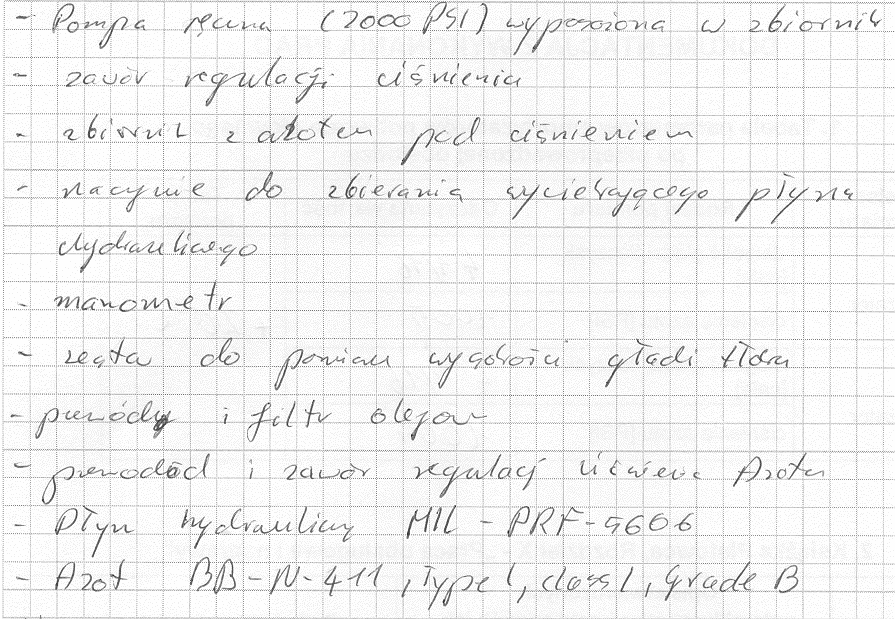 - Pompa ręczna (2000 PSI) wyposażona w zbiornik
- zawór regulacji ciśnienia
- zbiornik z azotem pod ciśnieniem
- naczynie do zbierania wyciekającego płynu
hydraulicznego
- manometr
- do pomiaru wysokości gładzi tłoka
- przewody i filtr olejowy
- przewód i zawór regulacji ciśnienia Azotu
- Płyn hydrauliczny MIL-PRF-5606
- Azot BB-N-411, Type I, class 1, Grade B